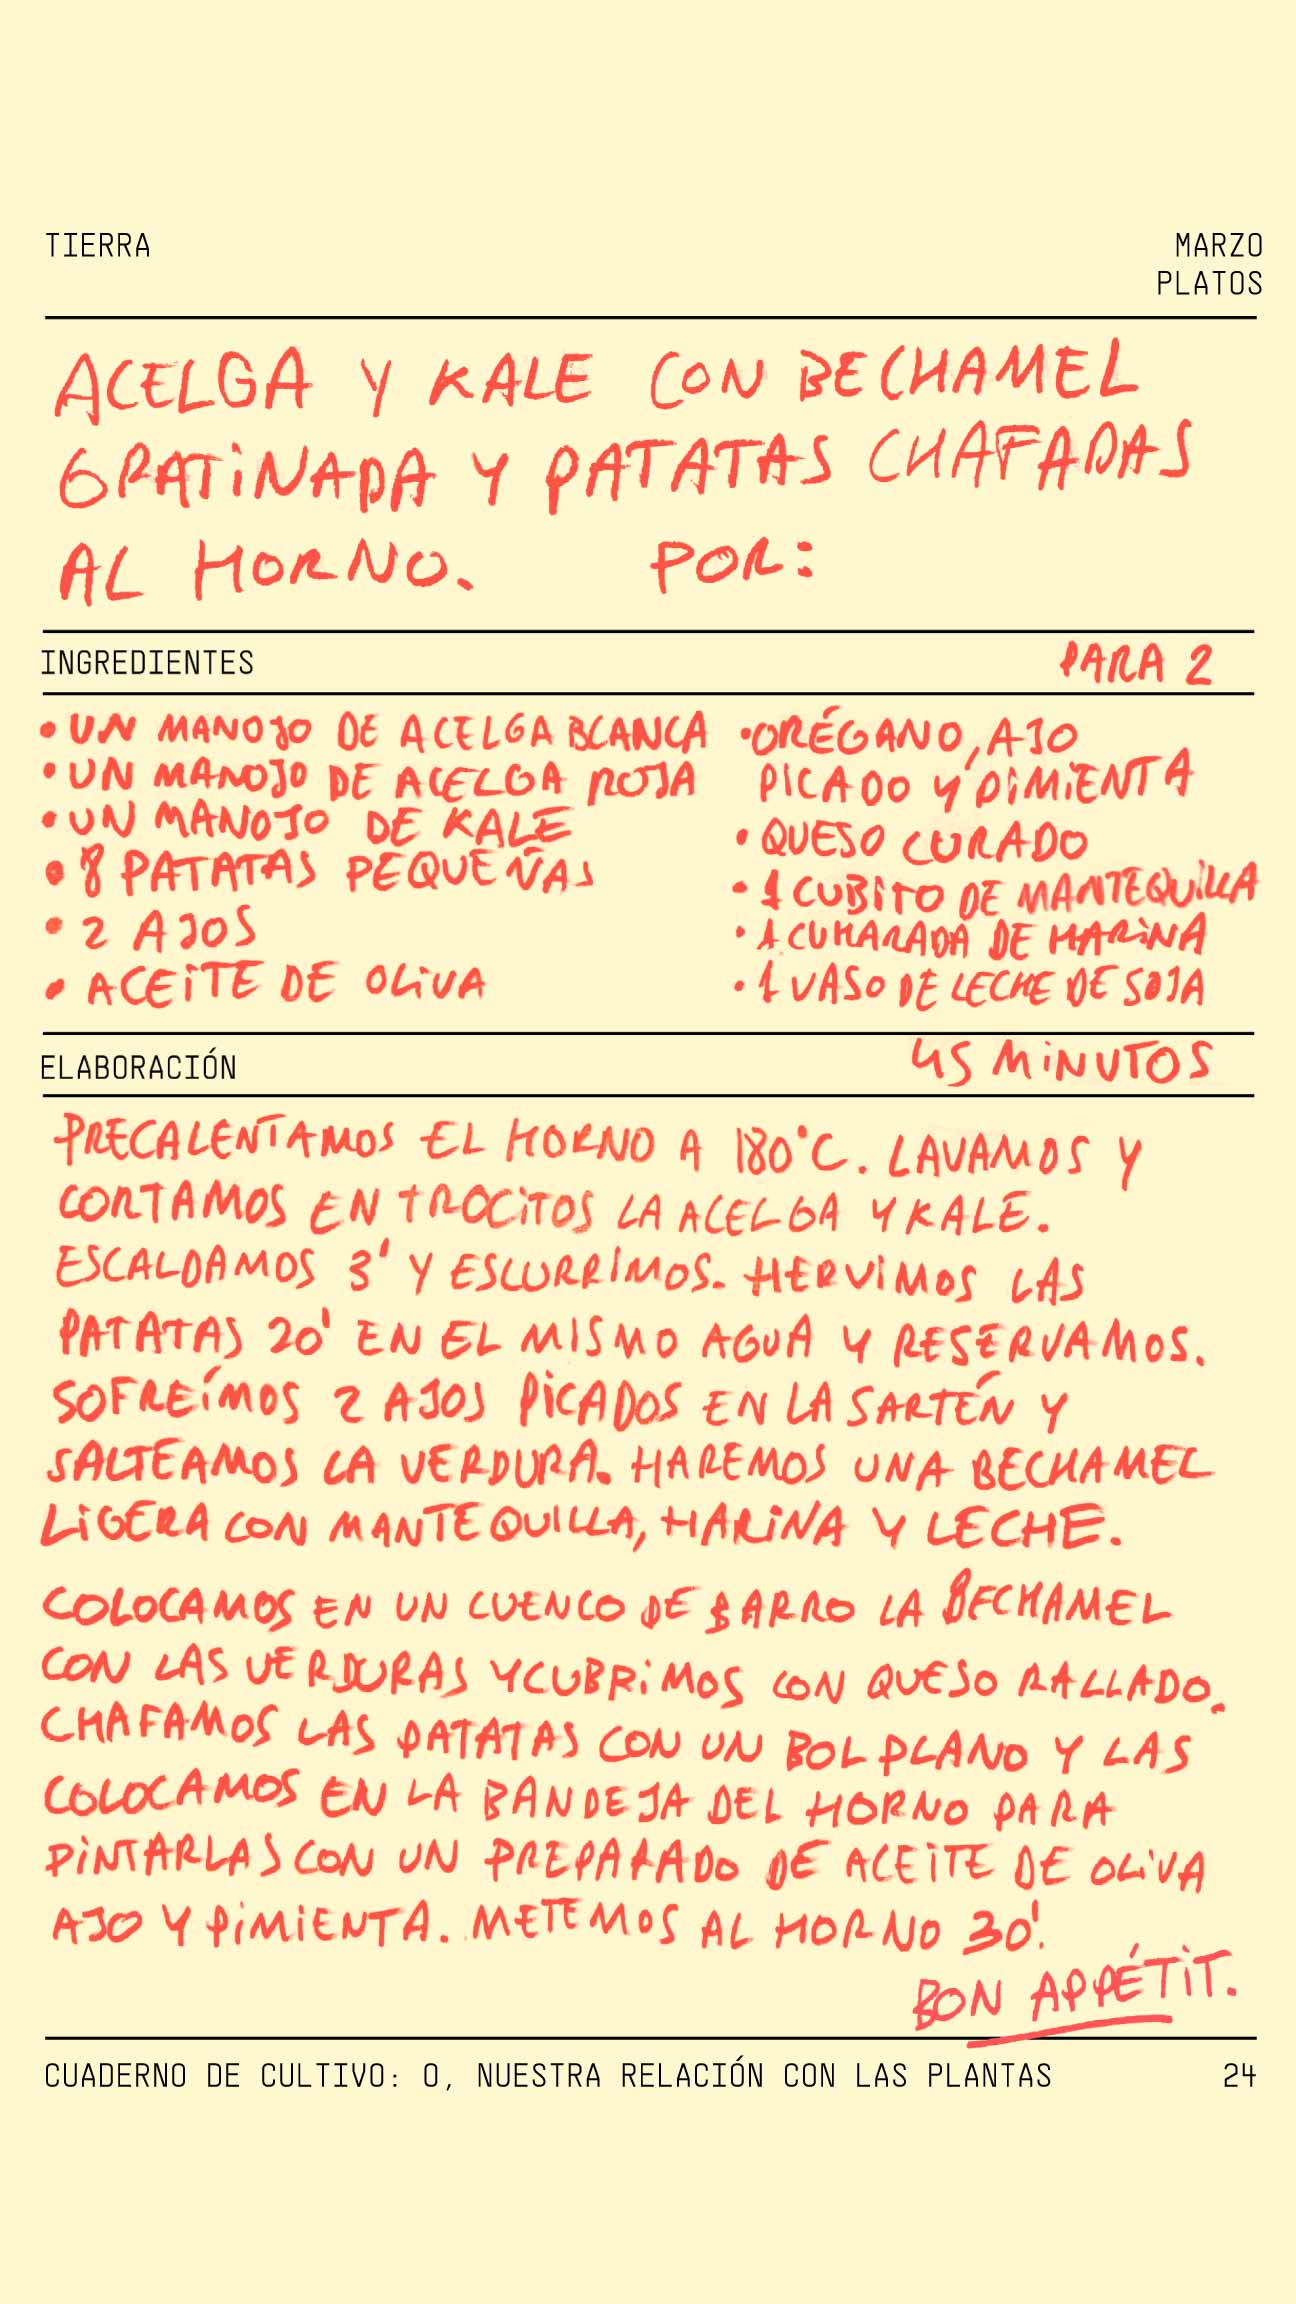 TIERRA
MARZO
PLATOS
ACELGA Y KALE CON BECHAMEL
GRATINADA Y PATATAS CHAFADAS
AL HORNO. POR:
INGREDIENTES
PARA 2
• UN MANOJO DE ACELGA BLANCA
• UN MANOJO DE ACELGA ROJA
• UN MANOJO DE KALE
• 8 PATATAS PEQUEÑAS
• 2 AJOS
• ACEITE DE OLIVA
• ORÉGANO, AJO
PICADO Y PIMIENTA
• QUESO CURADO
• 1 CUBITO DE MANTEQUILLA
• 1 CUHARADA DE HARINA
• 1 VASO DE LECHE DE SOJA
ELABORACIÓN
45 MINUTOS
PRECALENTAMOS EL HORNO A 180°C. LAVAMOS Y
CORTAMOS EN TROCITOS LA ACELGA Y KALE.
ESCALDAMOS 3' Y ESCURRIMOS. HERVIMOS LAS
PATATAS 20' EN EL MISMO AGUA Y RESERVAMOS.
SOFREÍMOS 2 AJOS PICADOS EN LA SARTÉN Y
SALTEAMOS LA VERDURA. HAREMOS UNA BECHAMEL
LIGERA CON MANTEQUILLA, HARINA Y LECHE.
COLOCAMOS EN UN CUENCO DE BARRO LA BECHAMEL
CON LAS VERDURAS Y CUBRIMOS CON QUESO RALLADO.
CHAFAMOS LAS PATATAS CON UN BOL PLANO Y LAS
COLOCAMOS EN LA BANDEJA DEL HORNO PARA
PINTARLAS CON UN PREPARADO DE ACEITE DE OLIVA
AJO Y PIMIENTA. METEMOS AL HORNO 30'.
BON APPÉTIT.
CUADERNO DE CULTIVO: O, NUESTRA RELACIÓN CON LAS PLANTAS
24